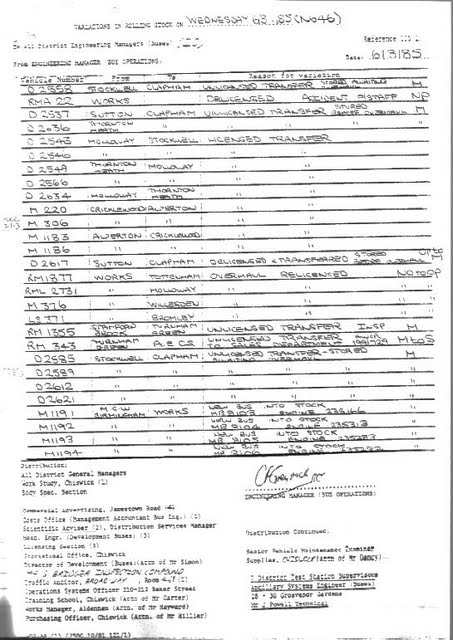 VARIATIONS IN ROLLING STOCK ON WEDNESDAY 6.3.85 (No 46)
To All District Engineering Managers (Buses)
Reference
From ENGINEERING MANAGER (BUS OPERATIONS)
Date: 6/3/85
Vehicle Number From To Reason for variation
D 2558 STOCKWELL CLAPHAM UNLICENSED TRANSFER STORED AWAITING OVERHAUL M
RMA 22 WORKS DELICENSED NP
D 2537 SUTTON CLAPHAM UNLICENSED TRANSFER STORED BEFORE OVERHAUL M
D 2636 THORNTON HEATH " " "
D 2543 HOLLOWAY STOCKWELL LICENSED TRANSFER
D 2546 " " "
D 2549 THORNTON HEATH HOLLOWAY "
D 2566 " " "
D 2634 HOLLOWAY THORNTON HEATH "
M 220 CRICKLEWOOD ALPERTON "
M 306 " " "
M 1183 ALPERTON CRICKLEWOOD "
M 1186 " " "
D 2617 SUTTON CLAPHAM DELICENSED & TRANSFERRED STORED BEFORE OVERHAUL OP to M
RM 1877 WORKS TOTTENHAM OVERHAUL RELICENSED NO to OP
RML 2731 " HOLLOWAY " "
M 376 " WILLESDEN " "
LS 371 " BROMLEY " "
RM 1355 STAMFORD BROOK TURNHAM GREEN UNLICENSED TRANSFER INSP M
RM 343 TURNHAM GREEN A.E.C.S. UNLICENSED TRANSFER TO SALES DEPARTMENT M to S
D 2585 STOCKWELL CLAPHAM UNLICENSED TRANSFER - STORED AWAITING OVERHAUL M
D 2589 " " " "
D 2612 " " " "
D 2621 " " " "
M 1191 M.C.W BIRMINGHAM WORKS NEW BUS INTO STOCK ENGINE
M 1192 " " NEW BUS INTO STOCK ENGINE
M 1193 " " NEW BUS INTO STOCK ENGINE
M 1194 " " NEW BUS INTO STOCK ENGINE
Distribution:
All District General Managers
Work Study, Chiswick (1)
Body Spec. Section
ENGINEERING MANAGER (BUS OPERATIONS)
Commercial Advertising, Jamestown Road
Costs Office (Management Accountant Bus Eng.) (1)
Scientific Adviser (2), Distribution Services Manager
Mech. Engr. (Development Buses) (3)
Licensing Section (3)
Statistical Office, Chiswick
Director of Development (Buses) (Attn of Mr Simon)
INSPECTION COMPOUND
Traffic Auditor, BROADWAY, Room
Operations Systems Officer 210-212 Baker Street
Training School, Chiswick (Attn of Mr Carter)
Works Manager, Aldenham (Attn of Mr Hayward)
Purchasing Officer, Chiswick (Attn of Mr Hillier)
Distribution Continued:
Senior Vehicle Maintenance Examiner
Supplies, (Attn of Mr Dancy)
7 District Test Station Supervisors
Ancillary Systems Engineer (Buses)
28 - 30 Grosvenor Gardens
Mr J Powell Technical